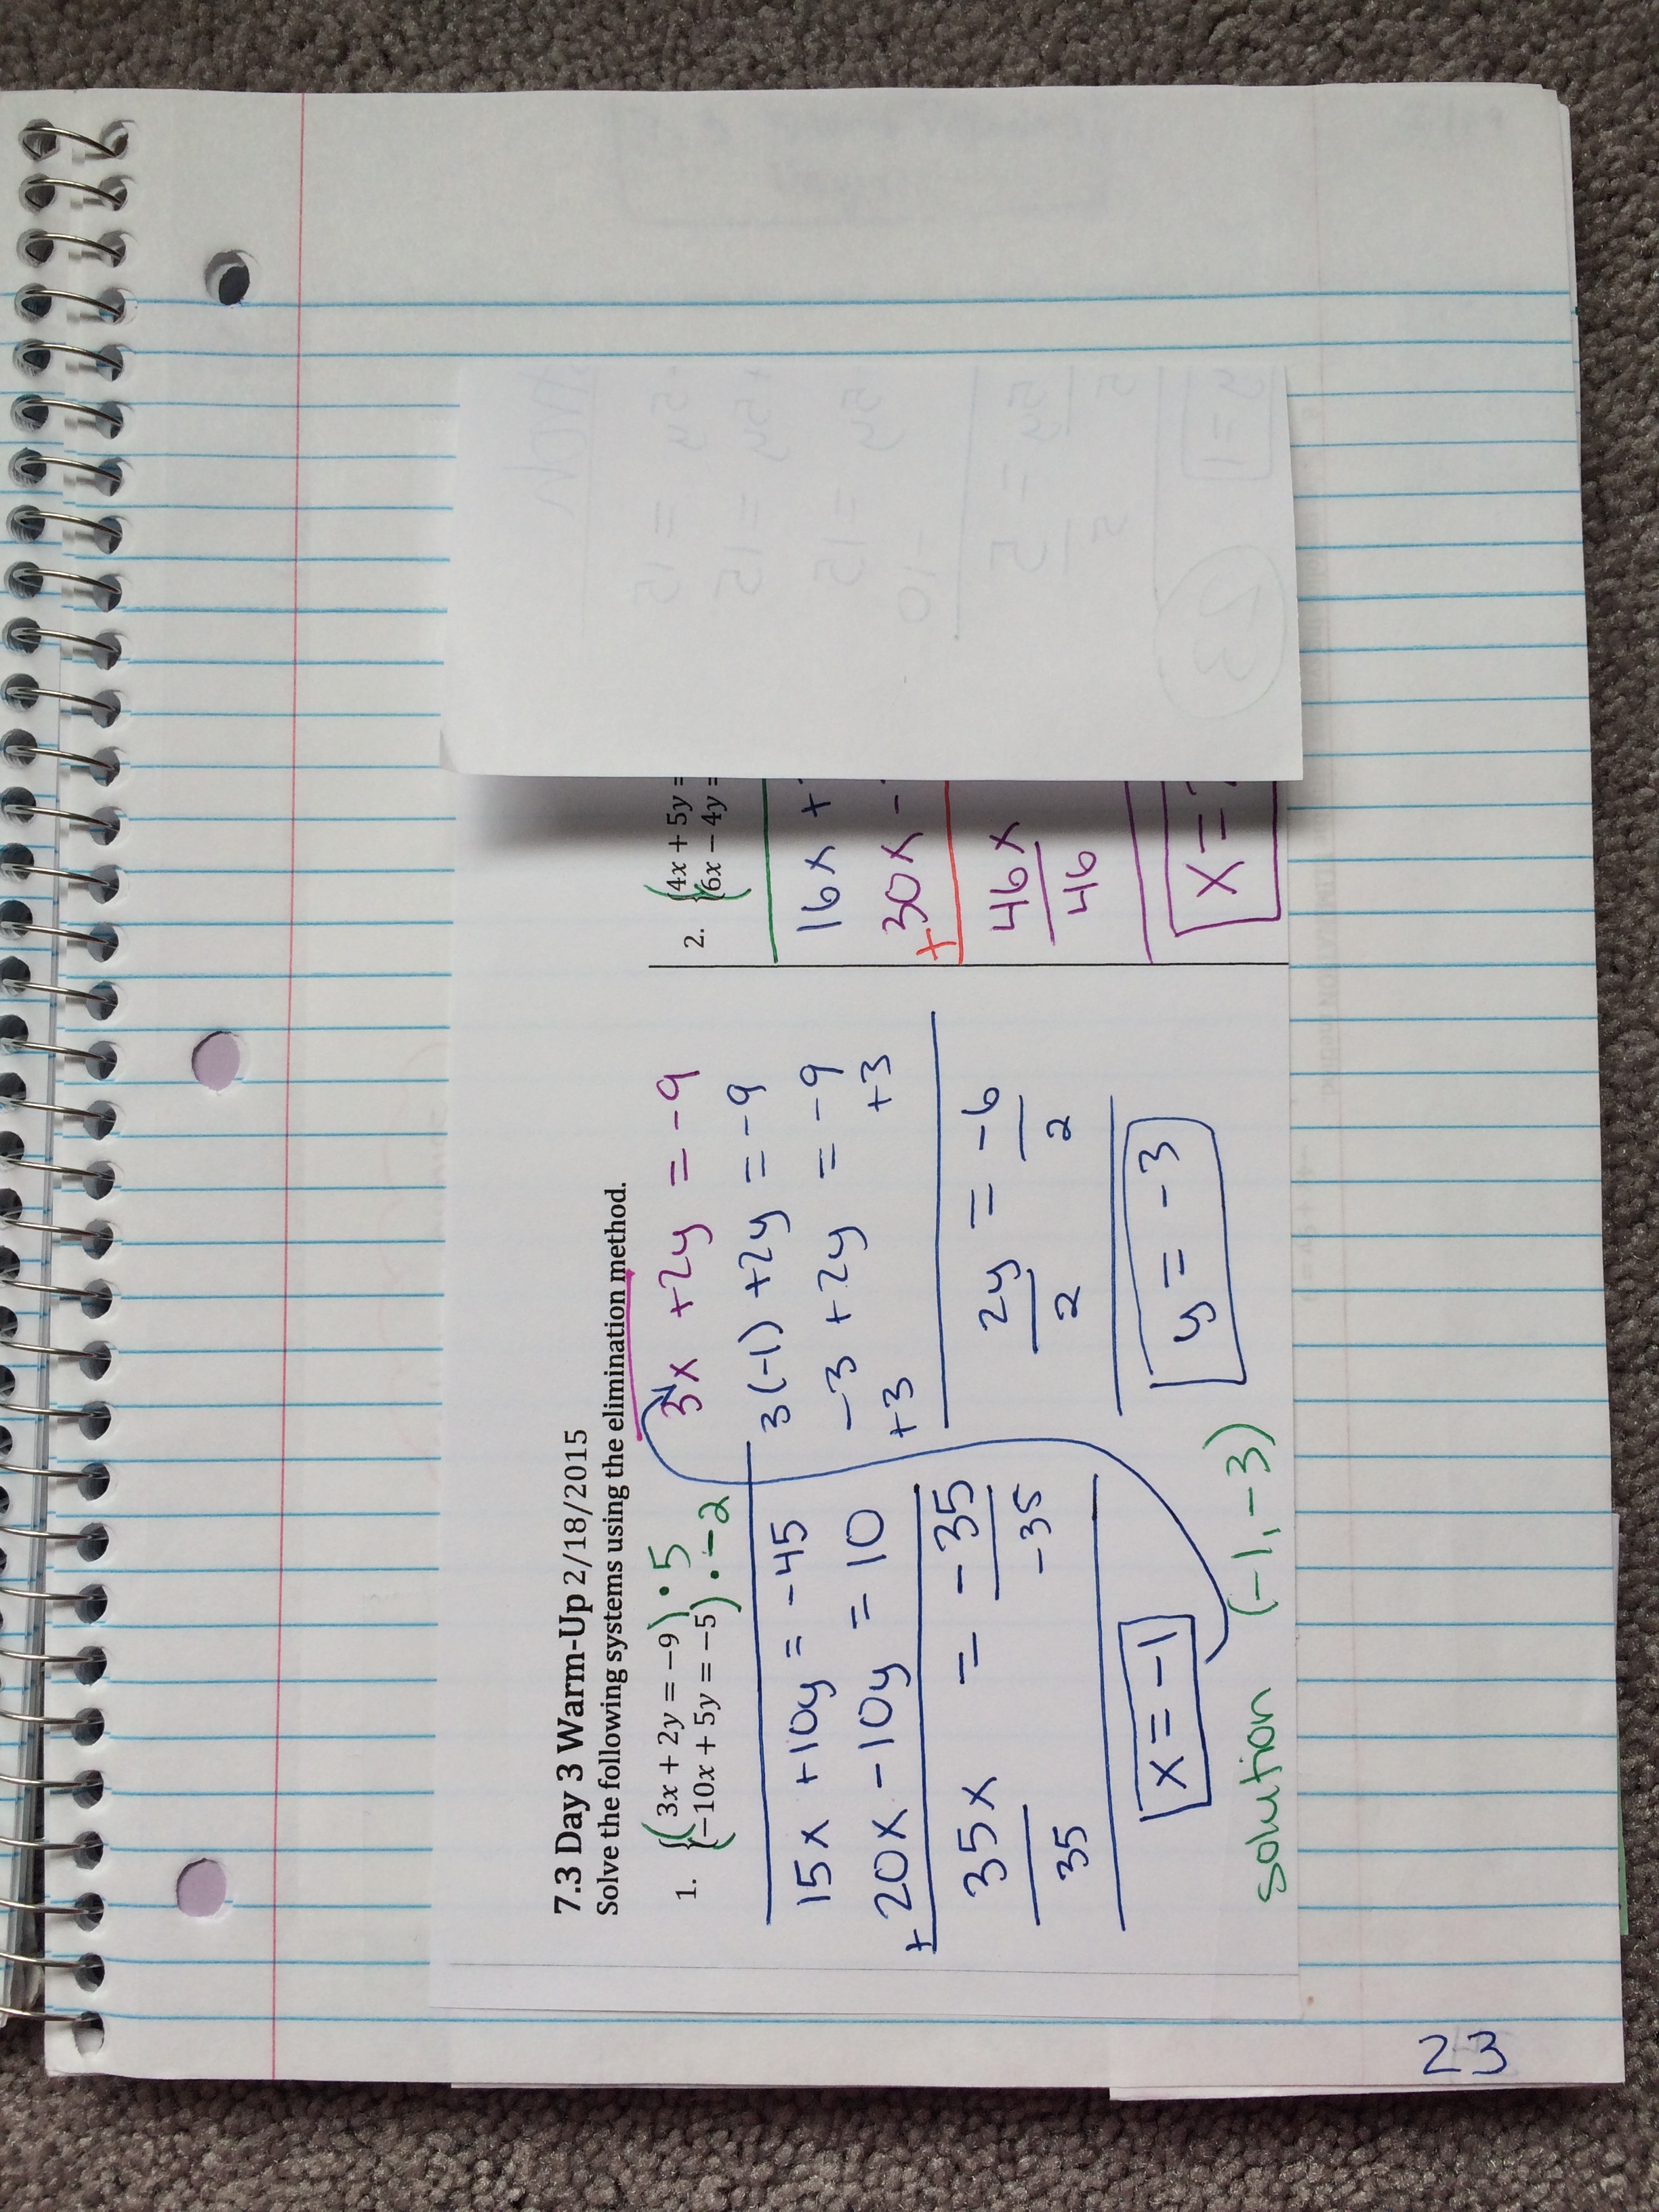 7.3 Day 3 Warm-Up 2/18/2015
Solve the following systems using the elimination method.
1. {(3x + 2y = −9) • 5
{(−10x + 5y = −5) • −2
15x + 10y = -45
+ 20x - 10y = 10
35x = -35
35 -35
x = -1
solution (-1, -3)
3x + 2y = -9
3(-1) + 2y = -9
-3 + 2y = -9
+3 +3
2y = -6
2 2
y = -3
2. {(4x + 5y =
{(6x − 4y =
16x +
+ 30x -
46x
46
x =
23